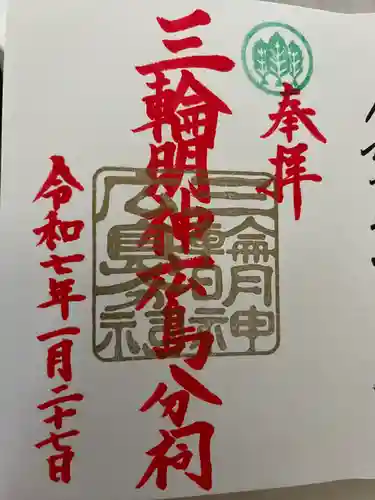 奉拝
三輪明神広島分祠
三輪明神広島分祠
令和七年一月二十七日